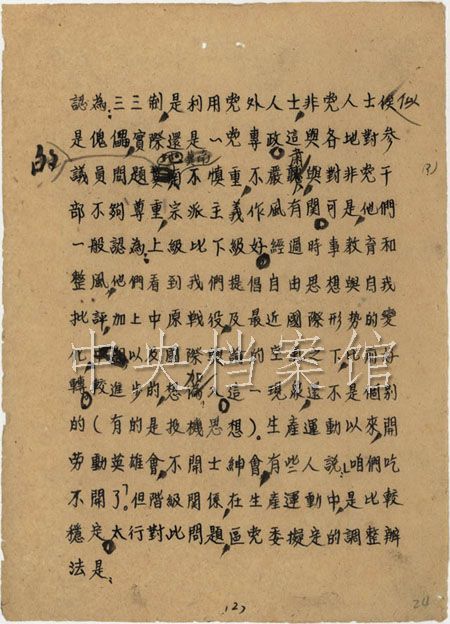 認為:三三制是利用党外人士非党人士候似
是傀儡實際還是一党專政這與各地對參
的
議員問題 不慎重不嚴肅與對非党干
部不夠尊重宗派主義作風有関可是他們
(3)
一般認為上級比下級好經過時事教育和
整風他們看到我們提倡自由思想與自我
批評加上中原戰役及最近國際形勢的變
化 以及 的 之下比前好
轉較進步的想加入這一現象還不是個別
的(有的是投機思想)。生產運動以來開
劳動英雄會不開士紳會有些人説:"咱們吃
不開了"。但階級関係在生產運動中是比較
穩定太行對此問題區党委擬定的調整辦
法是:
(2)
24
中央档案馆